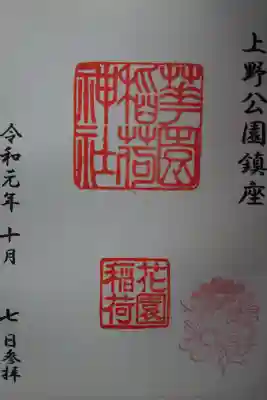 上野公園鎮座
華園
稲荷
神社
花園
稲荷
令和元年 十月 七日参拝